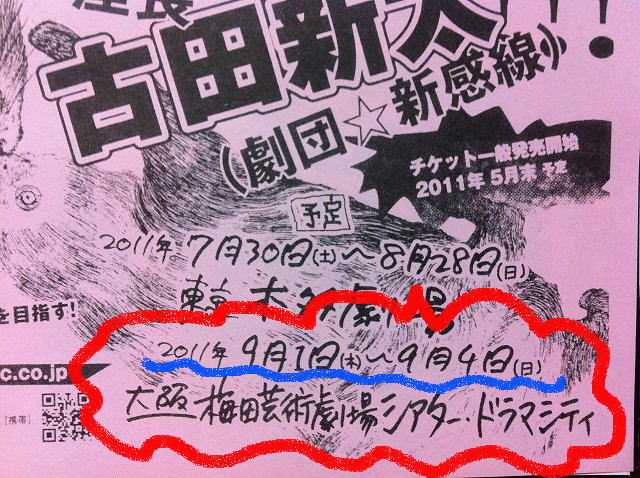 座長
古田新太!!!
(劇団☆新感線)
チケット一般発売開始
2011年5月末 予定
予定
2011年7月30日(土)〜8月28日(日)
東京 本多劇場
を目指す!
2011年 9月1日(木)〜9月4日(日)
c.co.jp
大阪 梅田芸術劇場シアター・ドラマシティ
【携帯】